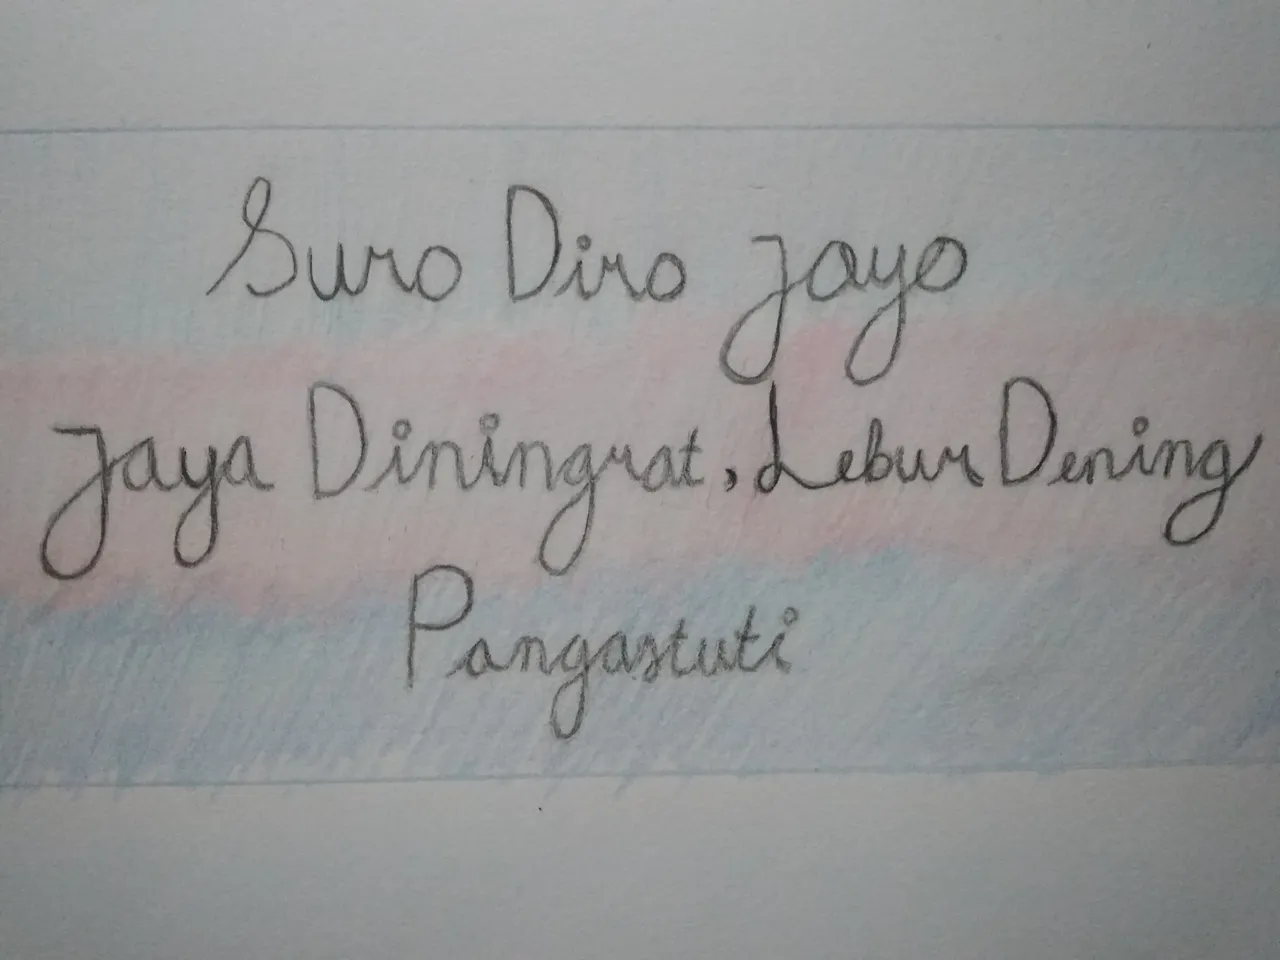 Suro Diro Jayo
Jaya Diningrat, Lebur Dening
Pangastuti